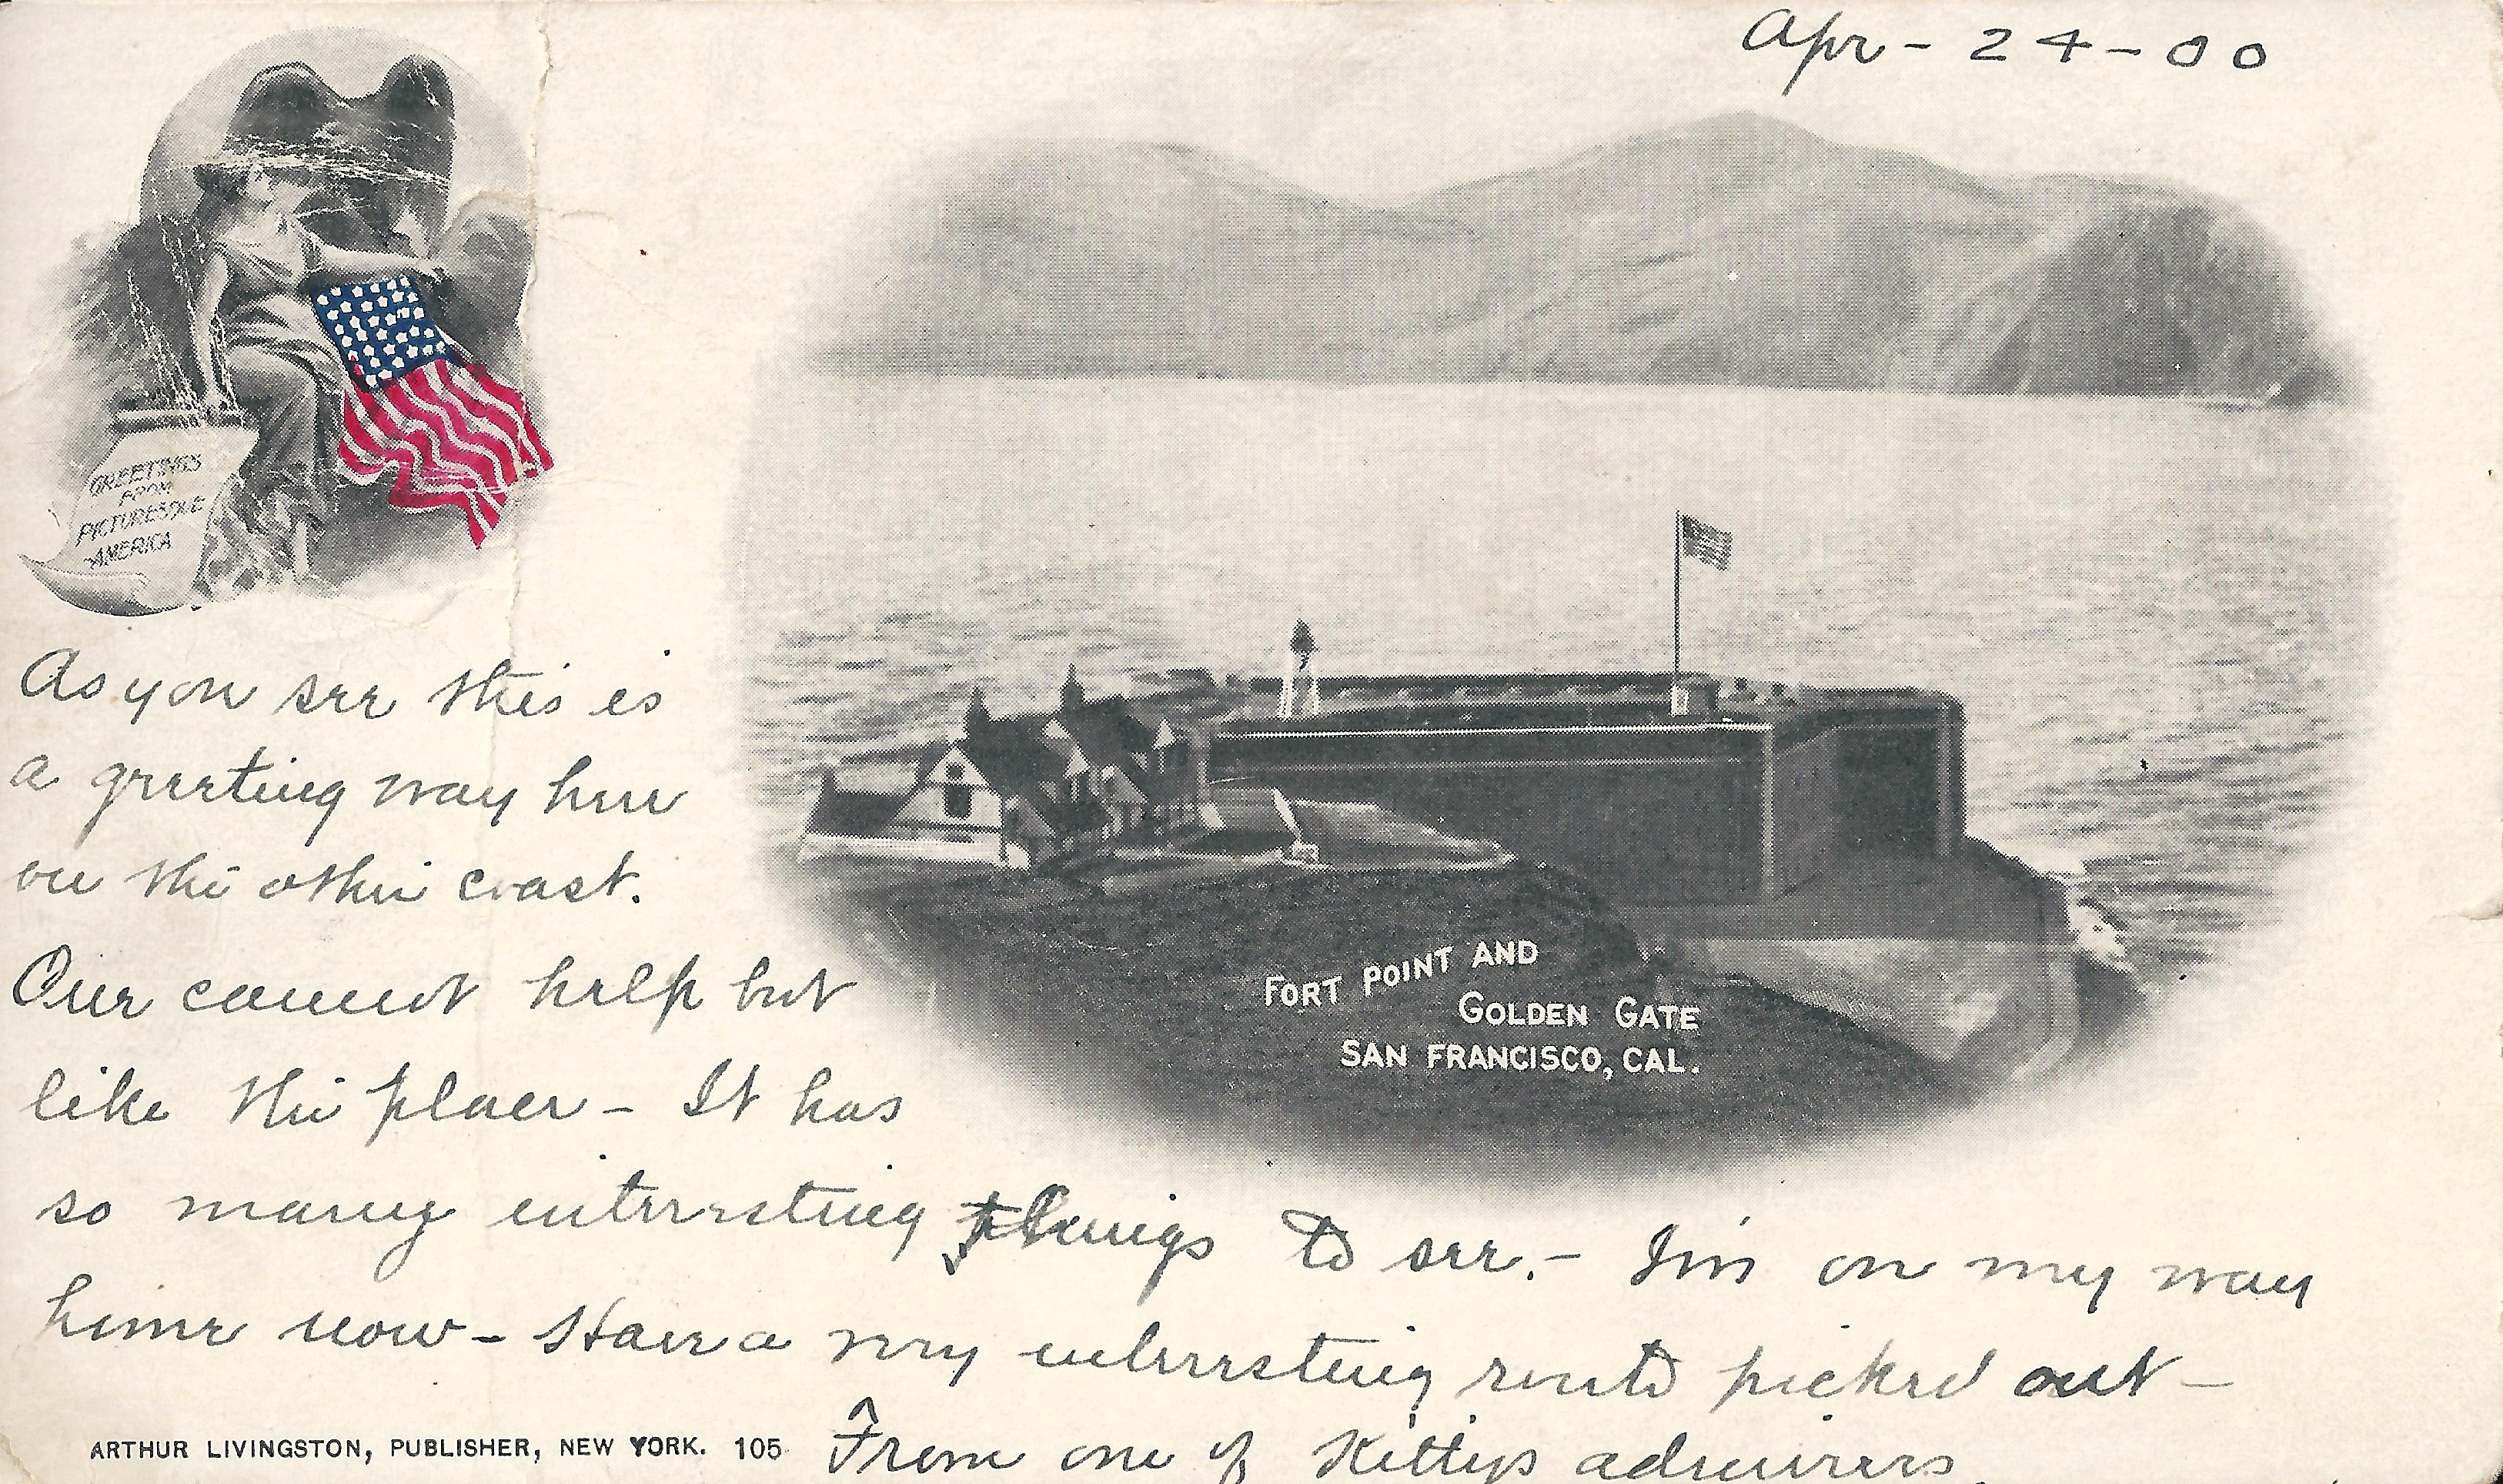 Apr - 24 - 00
GREETINGS
FROM
PICTURESQUE
AMERICA
As you see this is
a greeting way here
on the other coast.
One cannot help but
like the place - It has
so many interesting things to see. - I'm on my way
home now - Have a very interesting route picked out -
From one of Kittys admirers.
FORT POINT AND
GOLDEN GATE
SAN FRANCISCO, CAL.
ARTHUR LIVINGSTON, PUBLISHER, NEW YORK. 105